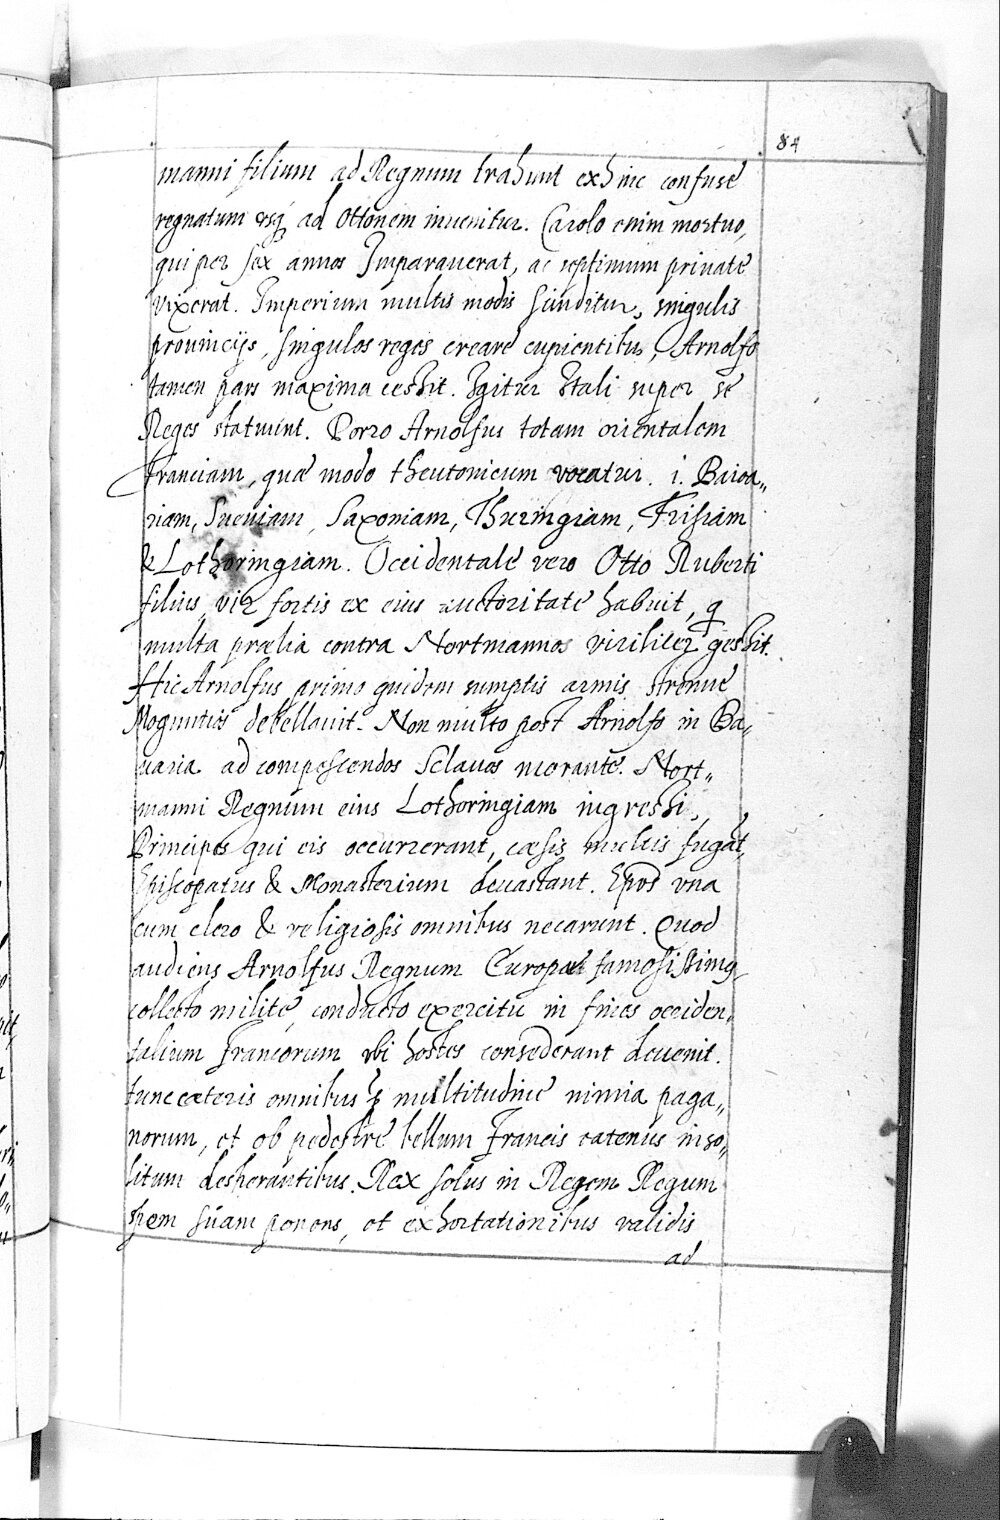 84
manni filium ad Regnum trahunt exhinc confusè
regnatum usq ad Ottonem inuenitur. Carolo enim mortuo,
qui per sex annos Imparauerat, ac septimum priuatè
vixerat. Imperium multis modis scinditur, singulis
prouincijs, singulos reges creare cupientibus, Arnolfo
tamen pars maxima cessit. Igitur Itali super se
Reges statuunt. Porro Arnolfus totam orientalem
Franciam, quæ modo theutonicum vocatur. i. Baioa„
riam, Sueuiam, Saxoniam, Thuringiam, Frisiam
& Lothoringiam. Occidentalē vero Otto Ruberti
filius, vir fortis ex eius auctoritate habuit, q
multa prælia contra Nortmannos viriliter gessit.
Hic Arnolfus primo quidem sumptis armis strenuè
Moguntios debellauit. Non multo post Arnolfo in Ba„
uaria ad compescendos Sclauos morante. Nort„
manni Regnum eius Lothoringiam ingressi,
Principes qui eis occurrerant, cæsis multis fugat,
Episcopatus & Monasterium deuastant. Epos vna
cum clero & religiosis omnibus necarunt. Quod
audiens Arnolfus Regnum Europæ famosissimq
collecto milite, conducto exercitu in fines occiden„
talium Francorum vbi hostes consederant deuenit.
tunc cæteris omnibus multitudine nimia paga„
norum, et ob pedestre bellum Francis eatenus inso„
litum desperantibus. Rex solus in Regem Regum
spem suam ponens, et exhortationibus validis
ad